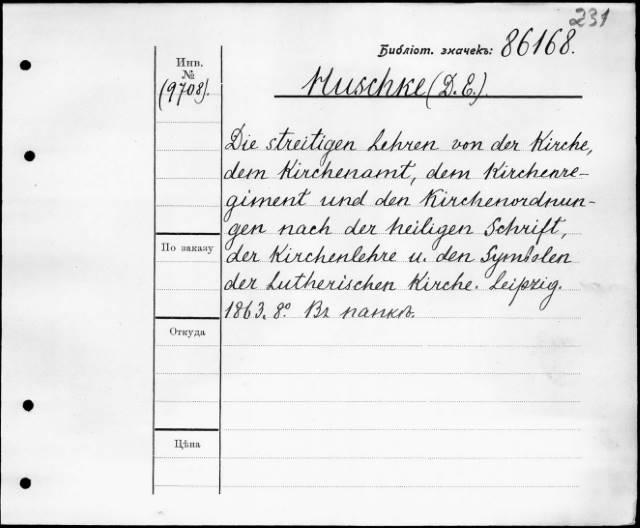 231
Библіот. значекъ: 86168.
Инв.
№
(9708).
Huschke (D. E.).
Die streitigen Lehren von der Kirche,
dem Kirchenamt, dem Kirchenre-
giment und den Kirchenordnun-
gen nach der heiligen Schrift,
По заказу
der Kirchenlehre u. den Symbolen
der Lutherischen Kirche. Leipzig.
1863. 8º. Въ папкѣ.
Откуда
Цѣна